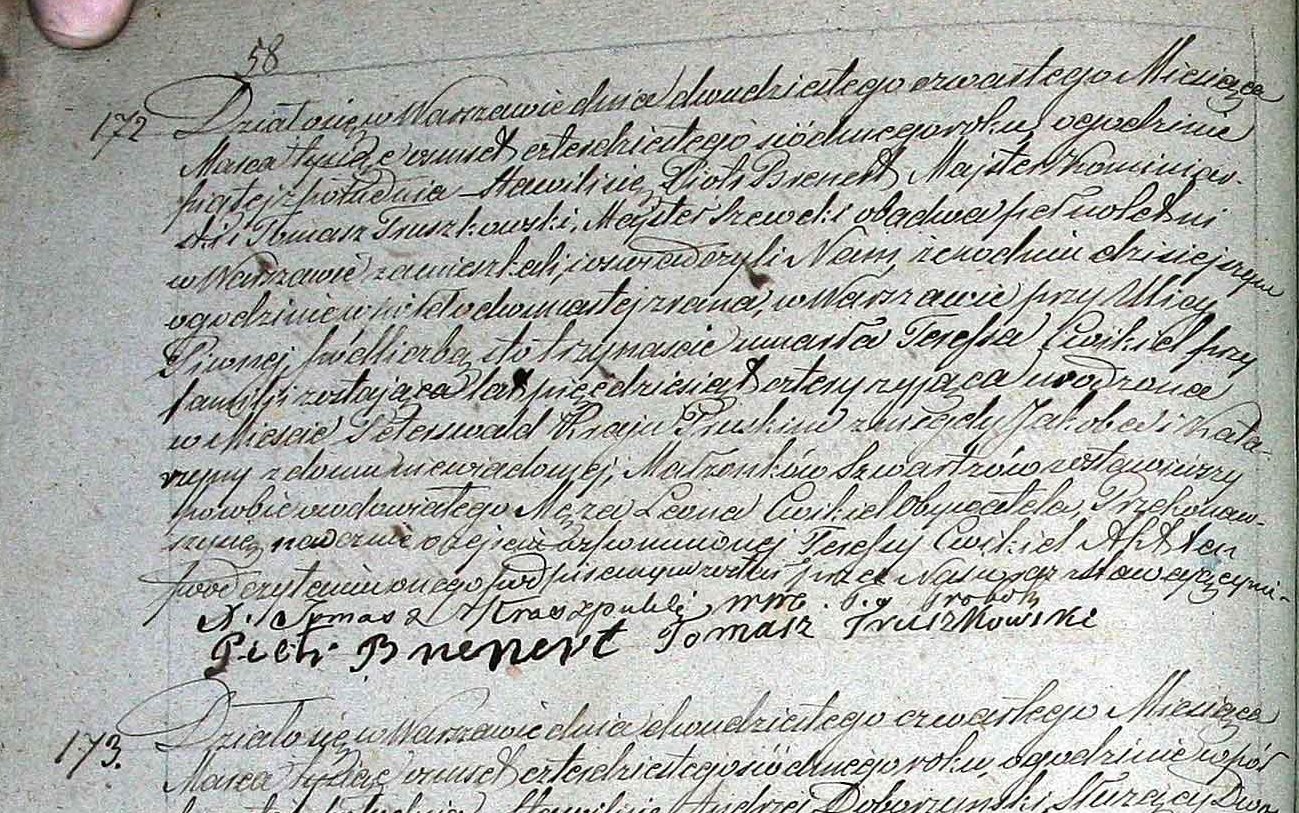 58
172 Działo się w Warszawie dnia dwudziestego czwartego Miesiąca
Marca tysiąc ośmset czterdziestego siódmego roku, o godzinie
piątej z południa Stawili się, Piotr Brenert Majster Kominiar-
ski i Tomasz Truszkowski, Majster Szewcki obadwa pełnoletni
w Warszawie zamieszkali, i oświadczyli Nam, że w dniu dzisiejszym
o godzinie w pół do dwunastej z rana, w Warszawie przy Ulicy
Piwnej, pod liczbą sto trzynaście umarła Teressa Cwikiel przy
familii zostająca lat pięćdziesiąt cztery żyjąca urodzona
w Mieście Peterswald Kraju Pruskim z niegdy Jakoba i Kata-
rzyny z domu niewiadomej, Małżonków Szwartzów zostawiwszy
po sobie owdowiałego Męża Leona Cwikiel Obywatela, Przekonaw-
szy się naocznie o zejściu wspomnionej Teressy Cwikiel Akt ten
po odczytaniu onego podpisany został przez Nas oraz stawających-
X. Tomasz
Piotr Brenert Tomasz Truszkowski
173. Działo się w Warszawie dnia dwudziestego czwartego Miesiąca
Marca tysiąc ośmset czterdziestego siódmego roku, o godzinie w pół
Stawili się Andrzej Doborzynski, Służący